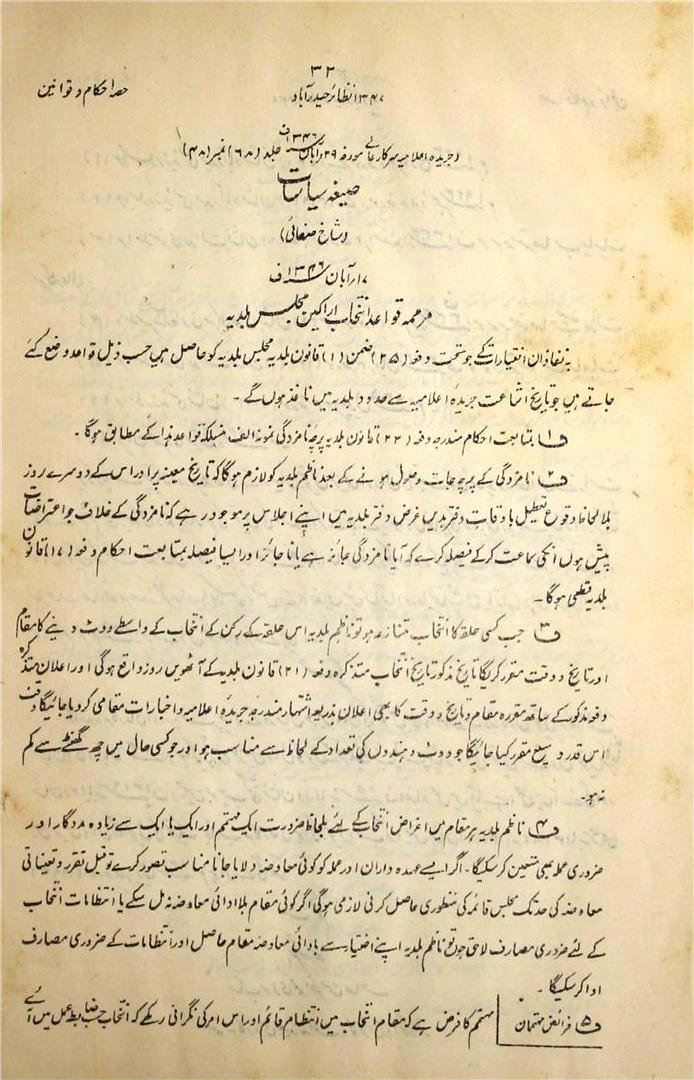 ۳۲
۱۳۴۷ انظائر حیدرآباد
حصہ احکام و قوانین
(جریدہ اعلامیہ سرکارعالی مورخہ ۲۹ آبان ۱۳۴۶ف جلد (۶۸) نمبر (۴۸)
صیغہ سیاسات
(شاخ صنعائی)
۱۷ آبان ۱۳۴۶ف
مرممہ قواعد انتخاب اراکین مجلس بلدیہ
بہ نفاذ ان اختیارات کے جو تحت دفعہ (۲۵) ضمن (۱) قانون بلدیہ مجلس بلدیہ کو حاصل ہیں حسب ذیل قواعد وضع کئے
جاتے ہیں جو تاریخ اشاعت جریدہ اعلامیہ سے حدود بلدیہ میں نافذ ہوں گے۔
ف۱ بمتابعت احکام مندرجہ دفعہ (۲۳) قانون بلدیہ پرچہ نامزدگی نمونہ الف منسلکہ قواعد ہذا کے مطابق ہوگا۔
ف۲ نامزدگی کے پرچہ جات وصول ہونے کے بعد ناظم بلدیہ کو لازم ہوگا کہ تاریخ معینہ پر اور اس کے دوسرے روز
بلا لحاظ وقوع تعطیل باوقات دفتر بدیں غرض دفتر بلدیہ میں اپنے اجلاس پر موجود رہے کہ نامزدگی کے خلاف جو اعتراضات
پیش ہوں انکی سماعت کرکے فیصلہ کرے کہ آیا نامزدگی جائز ہے یا ناجائز اور ایسا فیصلہ بمتابعت احکام دفعہ (۱۷) قانون
بلدیہ قطعی ہوگا۔
ف۳ جب کسی حلقہ کا انتخاب متنازعہ ہو تو ناظم بلدیہ اس حلقہ کے رکن کے انتخاب کے واسطے ووٹ دینے کا مقام
اور تاریخ و وقت مقرر کریگا تاریخ مذکور تاریخ انتخاب متذکرہ دفعہ (۲۱) قانون بلدیہ کے آٹھویں روز واقع ہوگی اور اعلان متذکرہ
دفعہ مذکور کے ساتھ مقررہ مقام و تاریخ و وقت کا بھی اعلان بذریعہ اشتہار مندرجہ جریدہ اعلامیہ و اخبارات مقامی کر دیا جائیگا وقت
اس قدر وسیع مقرر کیا جائیگا جو ووٹ دہندوں کی تعداد کے لحاظ سے مناسب ہو اور جو کسی حال میں چھ گھنٹے سے کم
نہ ہو۔
ف۴ ناظم بلدیہ ہر مقام میں اغراض انتخاب کے لئے بلحاظ ضرورت ایک مہتمم اور ایک یا ایک سے زیادہ مددگار اور
ضروری عملہ بھی متعین کر سکیگا۔ اگر ایسے عہدہ داران اور عملہ کو کوئی معاوضہ دلایا جانا مناسب تصور کرے تو قبل تقرر و تعیناتی
معاوضہ کی حد تک مجلس قائمہ کی منظوری حاصل کرنی لازمی ہوگی اگر کوئی مقام بلا ادائی معاوضہ نہ مل سکے یا انتظامات انتخاب
کے لئے ضروری مصارف لاحق ہوں تو ناظم بلدیہ اپنے اختیار سے بادائی معاوضہ مقام حاصل اور انتظامات کے ضروری مصارف
ادا کر سکیگا۔
ف۵ فرائض مہتمان
مہتمم کا فرض ہے کہ مقام انتخاب میں انتظام قائم اور اس امر کی نگرانی رکھے کہ انتخاب حسب ضابطہ عمل میں آئے